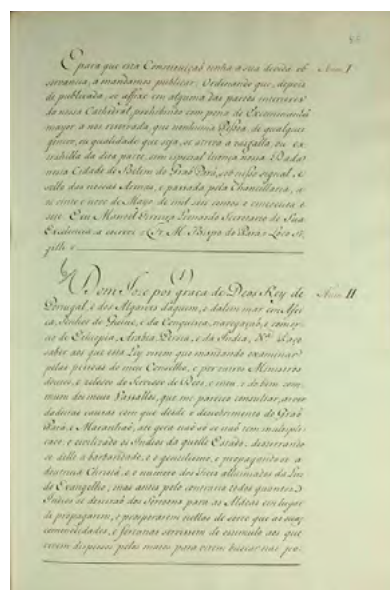 E para que esta Constituiçaõ tenha a sua devida ob- Num. I
servancia, a mandamos publicar, Ordenando que, depois
de publicada, se affixe em alguma das partes interiores
da nossa Cathedral, prohibindo com pena de Excommunhaõ
mayor a nos reservada, que nenhuma Pessoa, de qualquer
genero, ou qualidade que seja, se atreva a rasgalla, ou
tiralla da dita parte, sem especial licença nossa. Dada
nesta Cidade de Belem do Graõ Pará, sob nosso signal, e
sello das nossas Armas, e passada pela Chancellaria, a
os vinte e nove de Mayo, de mil sete centos e cincoenta e
sete. E eu Manoel Ferreyra Leonardo Secretario de Sua
Excelencia a escrevi. Fr. M. Bispo do Pará. Loco Si-
gilli.
Dom Joze por graça de Deos Rey de Num. II
Portugal, e dos Algarves daquem, e dalem mar em Afri-
ca, Senhor de Guiné, e da Conquista, navegaçaõ, e comer-
cio de Ethiopia, Arabia, Persia, e da India, &a. Faço
saber aos que esta Ley virem que mandando examinar
pelas pessoas do meu Conselho, e por varios Ministros
doctos, e zelozos do Serviço de Deos, e meu, e do bem com-
mum dos meus Vassallos, que me pareceo consultar, as ver-
dadeiras causas com que desde o descobrimento do Graõ
Pará, e Maranhaõ, até gora naõ só se naõ tem multipli-
cado, e civilizado os Indios da quelle Estado, desterrando-
se delle a barbaridade, e o gentilismo, e propagando-se a
doutrina Christã, e o numero dos Fieis alumiados da Luz
do Evangelho; mas antes pelo contrario todos quantos
Indios se desceraõ dos Sertoens para as Aldeas em lugar
de propagarem, e prosperarem nellas de sorte que as suas
comodidades, e fortunas servissem de estimulo aos que
vivem dispersos pelos matos para virem buscar nas po-